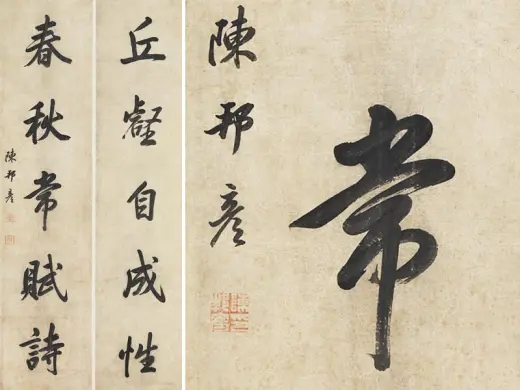 丘壑自成性
春秋常賦詩
陳邦彥
陳邦彥
常